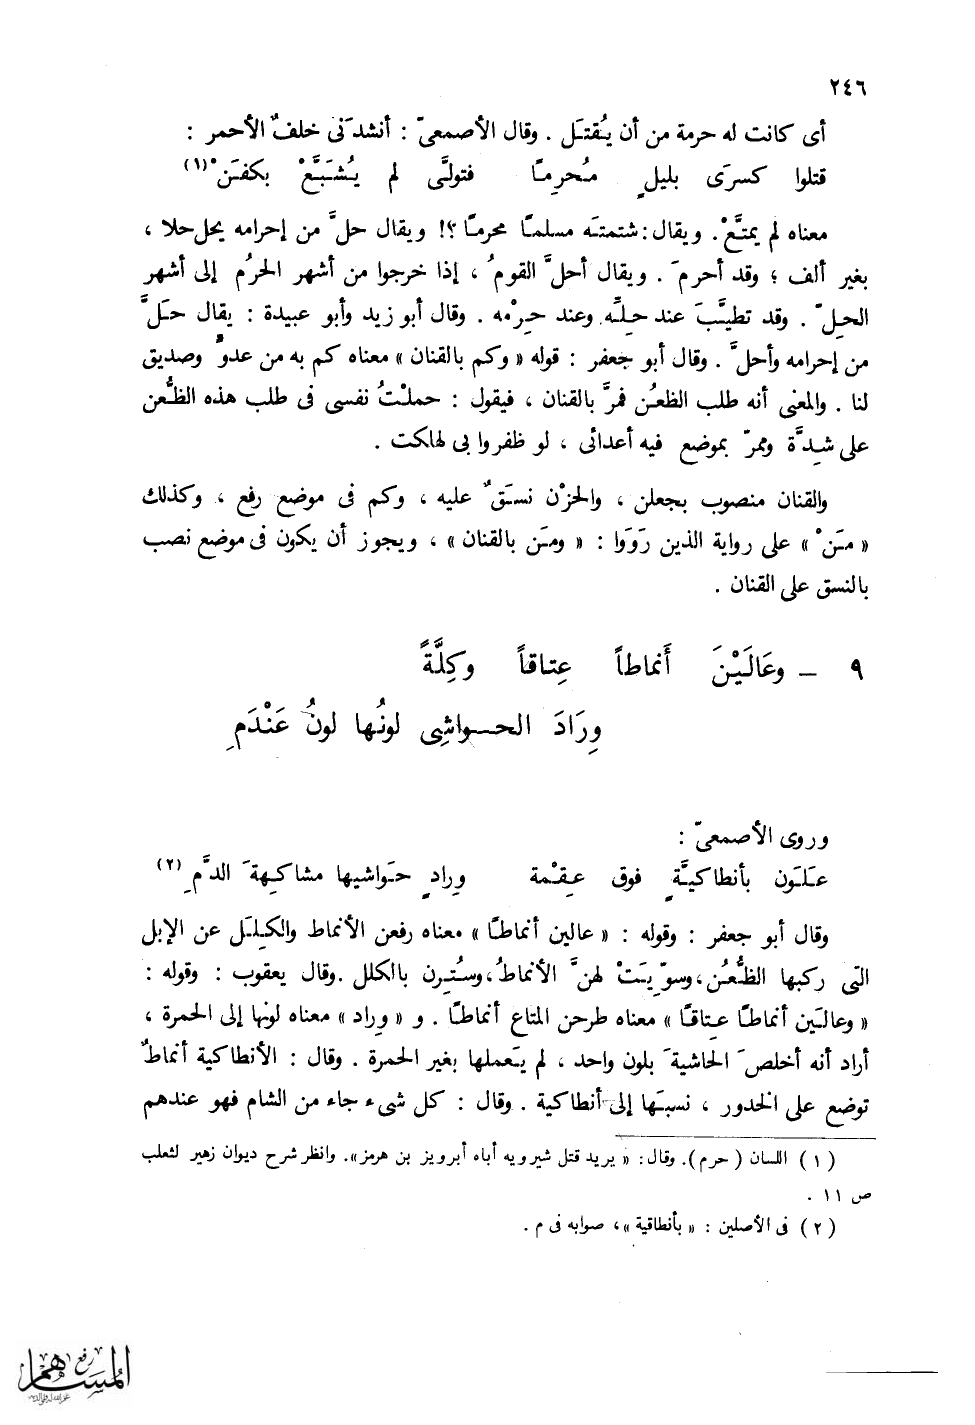 ٢٤٦
أى كانت له حرمة من أن يُقتَل . وقال الأصمعىّ : أنشدَنى خلفٌ الأحمر :
قتلوا كسرَى بليلٍ مُحرِمًا فتولَّى لم يُشبَّعْ بكفَنْ (١)
معناه لم يمتَّعْ. ويقال: شتمتَه مسلمًا محرمًا ؟! ويقال حلَّ من إحرامه يحل حلا ،
بغير ألف ؛ وقد أحرمَ . ويقال أحلَّ القومُ ، إذا خرجوا من أشهر الحرُم إلى أشهر
الحِلّ . وقد تطيَّبَ عند حلِّه وعند حِرْمه . وقال أبو زيد وأبو عبيدة : يقال حَلَّ
من إحرامه وأحلَّ . وقال أبو جعفر : قوله « وكم بالقنان » معناه كم به من عدوٍّ وصديق
لنا . والمعنى أنه طلب الظعُن فمرَّ بالقنان ، فيقول : حملْتُ نفسى فى طلب هذه الظُّعن
على شدَّة وممرّ بموضع فيه أعدائى ، لو ظفروا بى لهلكت .
والقنان منصوب بجعلن ، والحزْن نسَقٌ عليه ، وكم فى موضع رفع ، وكذلك
« مَنْ » على رواية الذين رَوَوا : « ومَن بالقنان » ، ويجوز أن يكون فى موضع نصب
بالنسق على القنان .
٩ ــ وعَالَيْنَ أَنماطاً عِتاقاً وكِلَّةً
وِرَادَ الحـــواشِى لونُها لونُ عَنْدَمِ
وروى الأصمعىّ :
عَلَون بأنطاكيَّةٍ فوق عِقْمة وِرادٍ حَواشيها مشاكهةَ الدَّمِ (٢)
وقال أبو جعفر : وقوله : « عالين أنماطًا » معناه رفعن الأنماط والكِلَل عن الإبل
التى ركبها الظُّعُن، وسوّيتْ لهنَّ الأنماطُ، وسُتِرن بالكلل . وقال يعقوب : وقوله :
« وعالَين أنماطًا عتاقًا » معناه طرحن المتاع أنماطًا . و « وراد » معناه لونها إلى الحمرة ،
أراد أنه أخلصَ الحاشيةَ بلون واحد ، لم يَعملها بغير الحمرة . وقال : الأنطاكية أنماطٌ
توضع على الخدور ، نسبَها إلى أنطاكية . وقال : كل شىء جاء من الشام فهو عندهم
(١) اللسان (حرم). وقال: « يريد قتل شيرويه أباه أبرويز بن هرمز». وانظر شرح ديوان زهير لثعلب
ص ١١ .
(٢) فى الأصلين : « بأنطاقية »، صوابه فى م .